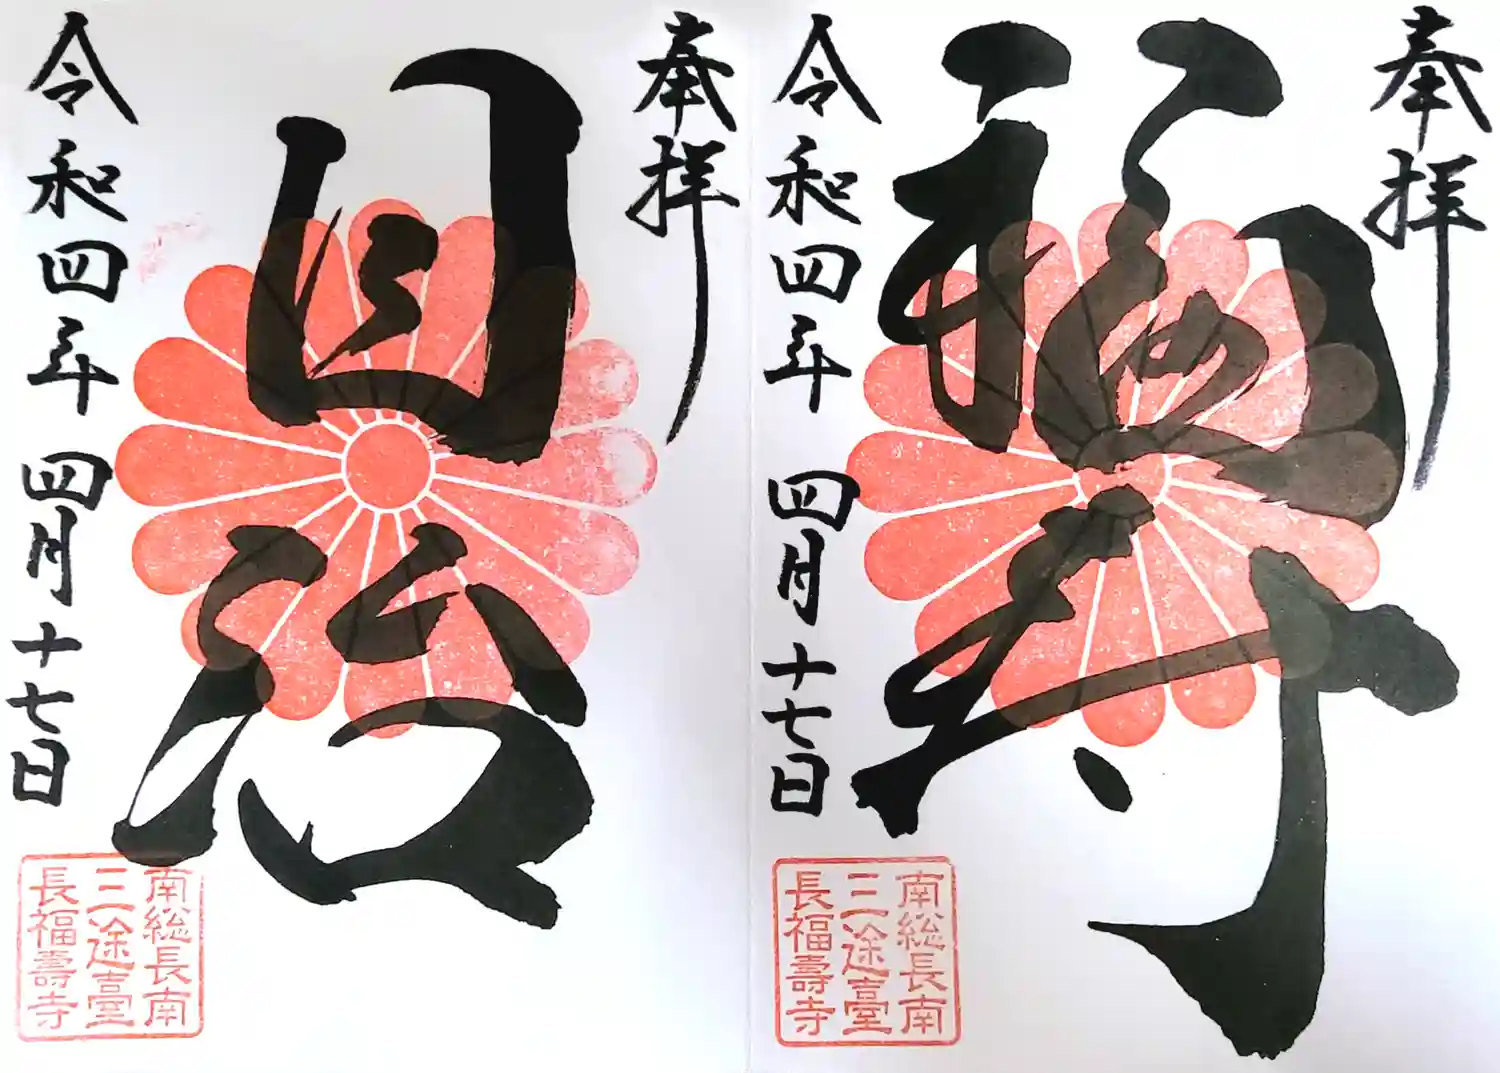 奉拝
福寿
令和四年 四月十七日
南総長南
三途臺
長福壽寺
奉拝
令和四年 四月十七日
南総長南
三途臺
長福壽寺